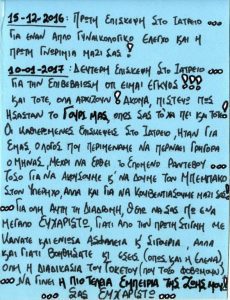 15-12-2016: ΠΡΩΤΗ ΕΠΙΣΚΕΨΗ ΣΤΟ ΙΑΤΡΕΙΟ
ΓΙΑ ΕΝΑΝ ΑΠΛΟ ΓΥΝΑΙΚΟΛΟΓΙΚΟ ΕΛΕΓΧΟ ΚΑΙ Η
ΠΡΩΤΗ ΓΝΩΡΙΜΙΑ ΜΑΖΙ ΣΑΣ!
10-01-2017: ΔΕΥΤΕΡΗ ΕΠΙΣΚΕΨΗ ΣΤΟ ΙΑΤΡΕΙΟ
ΓΙΑ ΤΗΝ ΕΠΙΒΕΒΑΙΩΣΗ ΟΤΙ ΕΙΜΑΙ ΕΓΚΥΟΣ!!!
ΚΑΙ ΤΟΤΕ, ΟΛΑ ΑΡΧΙΖΟΥΝ! ΑΚΟΜΑ, ΠΙΣΤΕΥΩ ΠΩΣ
ΗΣΑΣΤΑΝ ΤΟ ΓΟΥΡΙ ΜΑΣ, ΟΠΩΣ ΣΑΣ ΤΟ ΧΑ ΠΕΙ ΚΑΙ ΤΟΤΕ
ΟΙ ΚΑΘΙΕΡΩΜΕΝΕΣ ΕΠΙΣΚΕΨΕΙΣ ΣΤΟ ΙΑΤΡΕΙΟ, ΗΤΑΝ ΓΙΑ
ΕΜΑΣ, Ο ΛΟΓΟΣ ΠΟΥ ΠΕΡΙΜΕΝΑΜΕ ΝΑ ΠΕΡΝΑΕΙ ΓΡΗΓΟΡΑ
Ο ΜΗΝΑΣ, ΜΕΧΡΙ ΝΑ ΕΡΘΕΙ ΤΟ ΕΠΟΜΕΝΟ ΡΑΝΤΕΒΟΥ
ΤΟΣΟ ΓΙΑ ΝΑ ΑΚΟΥΣΟΥΜΕ & ΝΑ ΔΟΥΜΕ ΤΟΝ ΜΠΕΜΠΑΚΟ
ΣΤΟΝ ΥΠΕΡΗΧΟ, ΑΛΛΑ ΚΑΙ ΓΙΑ ΝΑ ΚΟΥΒΕΝΤΙΑΣΟΥΜΕ ΜΑΖΙ ΣΑΣ!
ΓΙΑ ΟΛΗ ΑΥΤΗ ΤΗ ΔΙΑΔΡΟΜΗ, ΘΕΛΩ ΝΑ ΣΑΣ ΠΩ ΕΝΑ
ΜΕΓΑΛΟ ΕΥΧΑΡΙΣΤΩ, ΓΙΑΤΙ ΑΠΟ ΤΗΝ ΠΡΩΤΗ ΣΤΙΓΜΗ ΜΕ
ΚΑΝΑΤΕ ΚΑΙ ΕΝΙΩΣΑ ΑΣΦΑΛΕΙΑ & ΣΙΓΟΥΡΙΑ, ΑΛΛΑ
ΚΑΙ ΓΙΑΤΙ ΒΟΗΘΗΣΑΤΕ ΚΙ ΕΣΕΙΣ (ΟΠΩΣ ΚΑΙ Η ΕΛΕΝΑ)
ΟΛΗ Η ΔΙΑΔΙΚΑΣΙΑ ΤΟΥ ΤΟΚΕΤΟΥ ΠΟΥ ΤΟΣΟ ΦΟΒΟΜΟΥΝ
ΝΑ ΓΙΝΕΙ Η ΠΙΟ ΤΕΛΕΙΑ ΕΜΠΕΙΡΙΑ ΤΗΣ ΖΩΗΣ ΜΟΥ!
ΣΑΣ ΕΥΧΑΡΙΣΤΩ